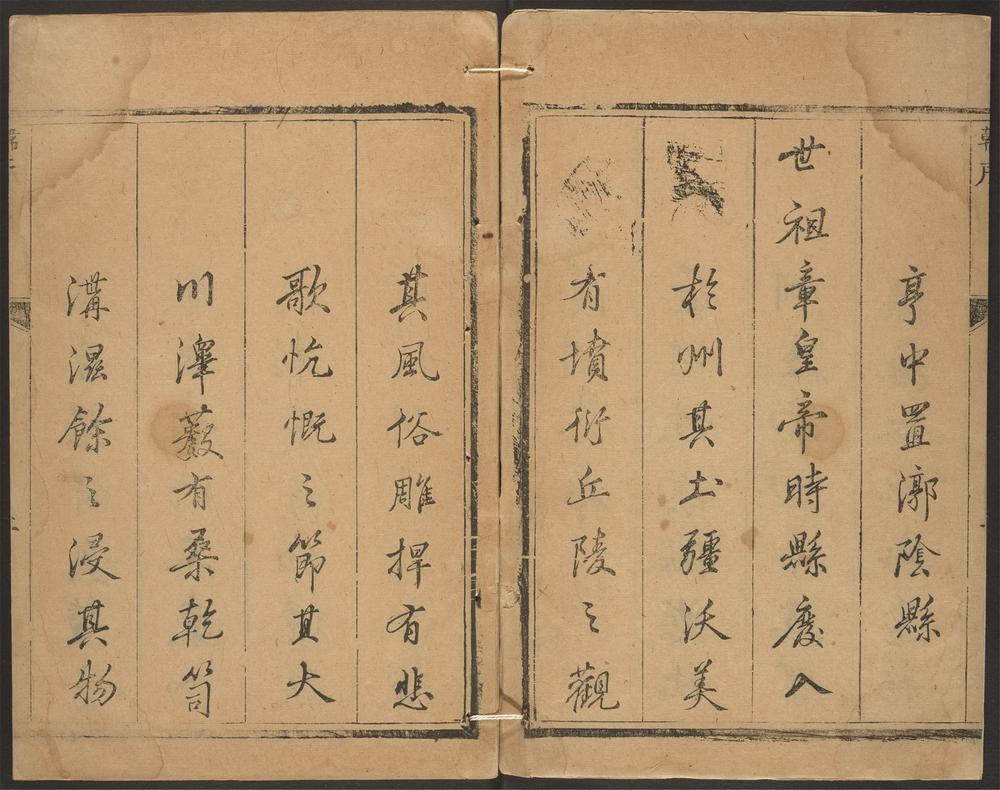 亨中置漷陰縣
世祖章皇帝時縣廢入
於州其土疆沃美
有墳衍丘陵之觀
其風俗雕捍有悲
歌忼慨之節其大
川澤藪有桑乾笥
溝濕餘之浸其物